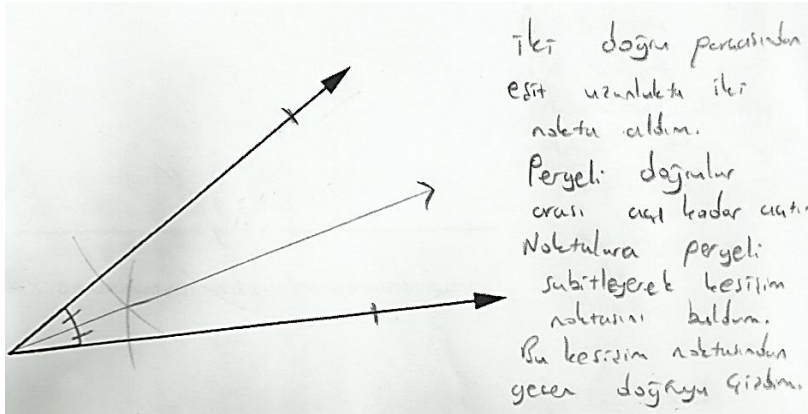 İki doğru parçasından
eşit uzunlukta iki
nokta aldım.
Pergeli doğrular
arası açı kadar açtım
Noktalara pergeli
sabitleyerek kesişim
noktasını buldum.
Bu kesişim noktasından
geçen doğruyu çizdim.